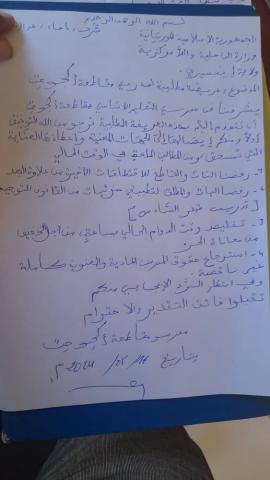 بسم الله الرحمن الرحيم
الجمهورية الإسلامية الموريتانية شرف، إخاء، عدالة
وزارة الداخلية واللامركزية
ولاية إينشيري
الموضوع: عريضة مطالبية لمدرسي مقاطعة أكجوجت
يشرفنا نحن مدرسي التعليم الأساسي بمقاطعة أكجوجت
أن نتقدم إليكم بهذه العريضة المطلبية نرجو من الله التوفيق
أولا ومنكم إيصالها إلى الجهات المعنية وإعطاءها العناية
التي تستحق ومن المطالب الملحة في الوقت الحالي
1 - رفضنا البات والقاطع للاقتطاعات الأخيرة من علاوة البعد
2 - رفضنا البات والمطلق لتطبيق جزئيات من القانون التوجيهي
(تدريس
3 - تقليص وقت الدوام الحالي بساعة، من أجل التخفيف
من معاناة الحر
4 - استرجاع حقوق المدرس المادية والمعنوية كاملة
غير ناقصة.
وفي انتظار الرد الإيجابي منكم
تقبلوا فائق التقدير والاحترام
مدرسو مقاطعة أكجوجت
بتاريخ 2024 م